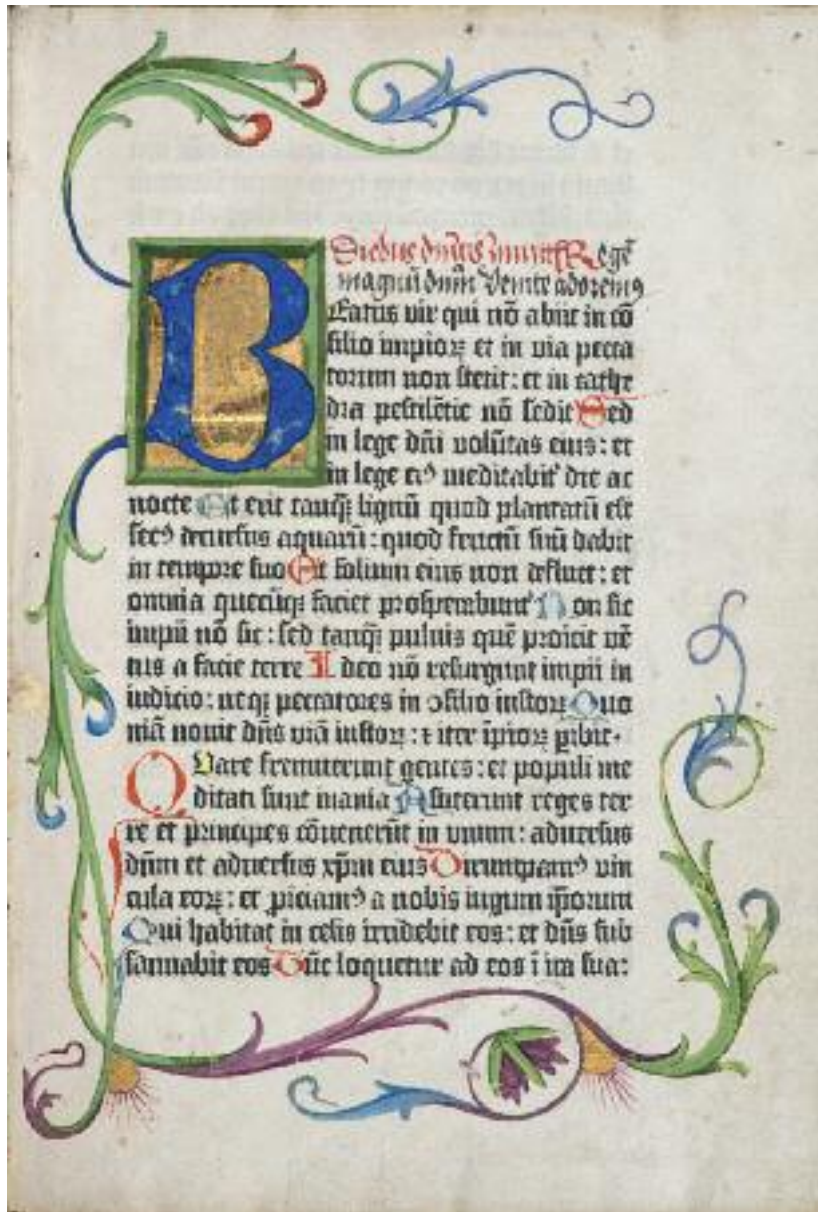 magnū dnm̄ Venite adorem⁹
Eatus vir qui nō abiit in cō
silio impioꝝ et in via pecca
torum non stetit: et in cathe
dra pestilētie nō sedit Sed
in lege dn̄i volūtas eius: et
in lege ei⁹ meditabit᷑ die ac
nocte Et erit tanqȝ lignū quod plantatū est
sec⁹ decursus aquarū: quod fructū suū dabit
in tempore suo Et folium eius non defluet: et
omnia quecūqȝ faciet prosperabunt᷑ Non sic
impii nō sic: sed tanqȝ puluis quē proicit vē
tus a facie terre Ideo nō resurgunt impii in
iudicio: neqȝ peccatores in ɔsilio iustoꝝ Quo
niā nouit dn̄s viā iustoꝝ: ⁊ iter īpioꝝ ꝑibit.
QVare fremuerunt gentes: et populi me
ditati sunt inania Astiterunt reges ter
re et principes cōuenerūt in vnum: aduersus
dn̄m et aduersus xp̄m eius Dirumpam⁹ vin
cula eoꝝ: et ꝓiciam⁹ a nobis iugum ip̄orum
Qui habitat in celis irridebit eos: et dn̄s sub
sannabit eos Tūc loquetur ad eos ī ira sua: